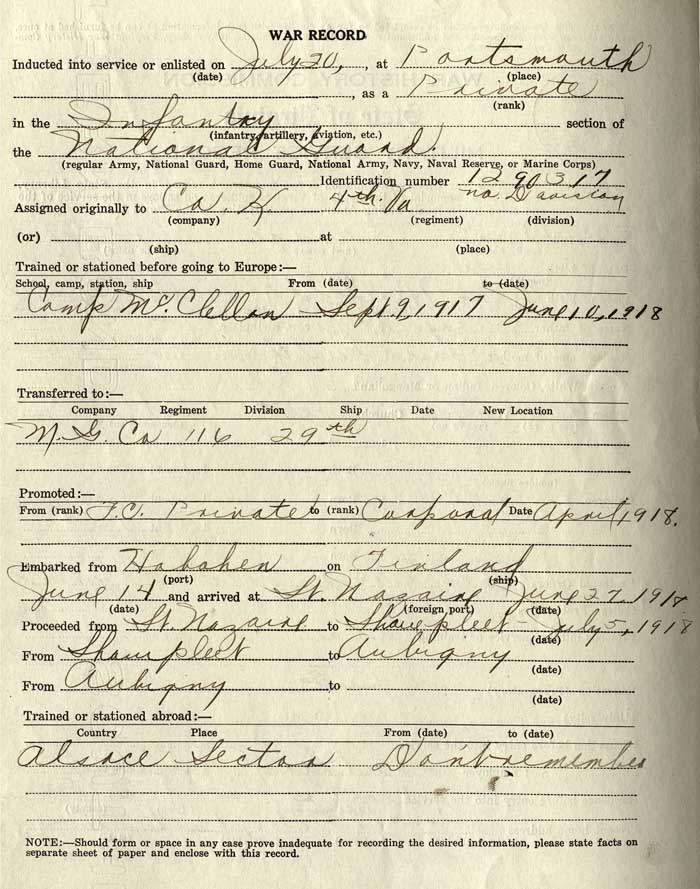 WAR RECORD
Inducted into service or enlisted on July 20, , at Portsmouth
(date) (place)
, as a Private
(rank)
in the Infantry section of
(infantry, artillery, aviation, etc.)
the National Guard.
(regular Army, National Guard, Home Guard, National Army, Navy, Naval Reserve, or Marine Corps)
Identification number 1290317
Assigned originally to Co. K 4th. Va no Division
(company) (regiment) (division)
(or) at
(ship) (place)
Trained or stationed before going to Europe:—
School, camp, station, ship From (date) to (date)
Camp McClellan Sept. 9, 1917 June 10, 1918
Transferred to:—
Company Regiment Division Ship Date New Location
M. G. Co 116 29th
Promoted:—
From (rank) F.C. Private to (rank) Corporal Date April, 1918.
Embarked from Hoboken on Finland
(port) (ship)
June 14 and arrived at St. Nazaire June 27, 1918
(date) (foreign port) (date)
Proceeded from St. Nazaire to Shampleet July 5, 1918
(date)
From Shampleet to Aubigny
(date)
From Aubigny to
(date)
Trained or stationed abroad:—
Country Place From (date) to (date)
Alsace Sector Don't remember
NOTE:—Should form or space in any case prove inadequate for recording the desired information, please state facts on
separate sheet of paper and enclose with this record.